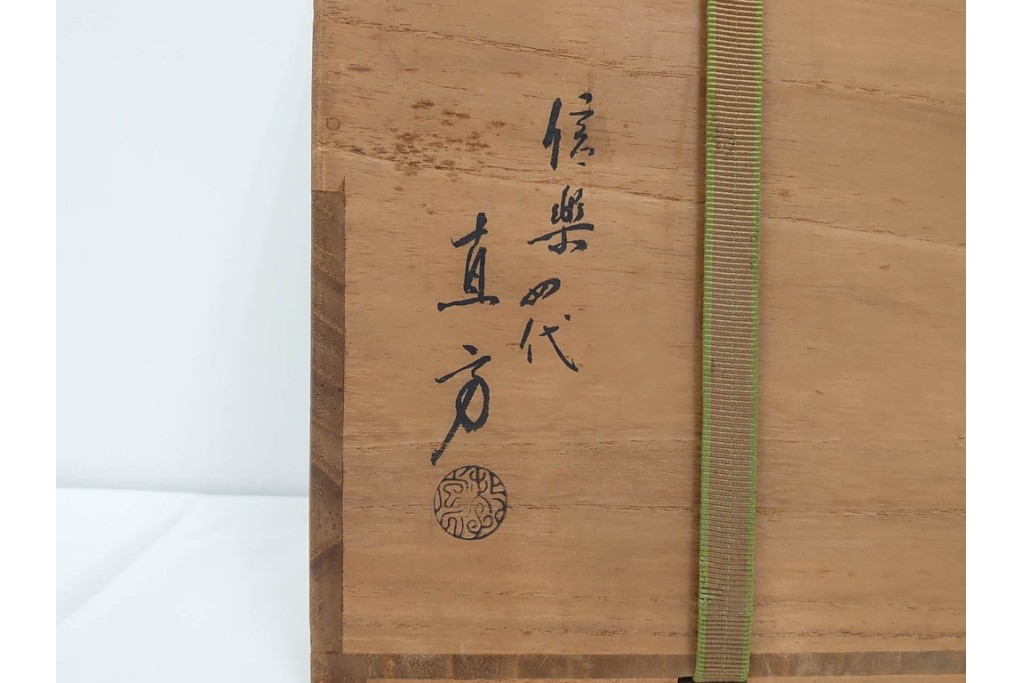 信楽四代
直方